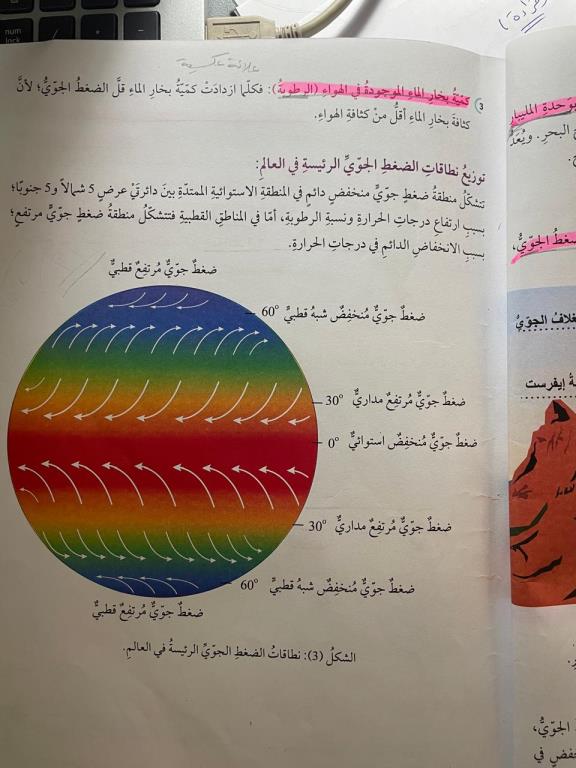 علاقة عكسية
3 كمّيّةُ بخارِ الماءِ الموجودةُ في الهواءِ (الرطوبةُ): فكلّما ازدادَتْ كمّيّةُ بخارِ الماءِ قلَّ الضغطُ الجوّيُّ؛ لأنَّ
كثافةَ بخارِ الماءِ أقلُّ منْ كثافةِ الهواءِ.
توزيعُ نطاقاتِ الضغطِ الجوّيِّ الرئيسةِ في العالمِ:
تتشكّلُ منطقةُ ضغطٍ جوّيٍّ منخفضٍ دائمٍ في المنطقةِ الاستوائيةِ الممتدّةِ بينَ دائرتَيْ عرضِ 5 شمالاً و5 جنوبًا؛
بسببِ ارتفاعِ درجاتِ الحرارةِ ونسبةِ الرطوبةِ، أمّا في المناطقِ القطبيةِ فتتشكّلُ منطقةُ ضغطٍ جوّيٍّ مرتفعٍ؛
بسببِ الانخفاضِ الدائمِ في درجاتِ الحرارةِ.
ضغطٌ جوّيٌّ مُرتفِعٌ قطبيٌّ
60° ضغطٌ جوّيٌّ مُنخفِضٌ شبهُ قطبيٍّ
30° ضغطٌ جوّيٌّ مُرتفِعٌ مداريٌّ
0° ضغطٌ جوّيٌّ مُنخفِضٌ استوائيٌّ
30° ضغطٌ جوّيٌّ مُرتفِعٌ مداريٌّ
60° ضغطٌ جوّيٌّ مُنخفِضٌ شبهُ قطبيٍّ
ضغطٌ جوّيٌّ مُرتفِعٌ قطبيٌّ
الشكلُ (3): نطاقاتُ الضغطِ الجوّيِّ الرئيسةُ في العالمِ.
num
lock
المليبار
البحرِ. ويُعَدُّ
الجوّيُّ،
الغلاف الجويُّ
إيفرست
الجوّيُّ،
في